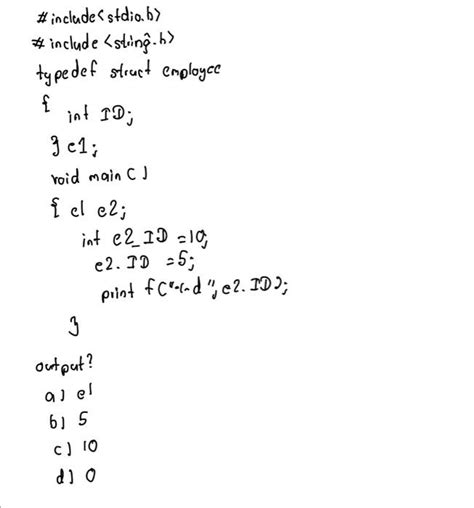 #include<stdio.h>
#include <string.h>
typedef struct employee
{
int ID;
} e1;
void main()
{ e1 e2;
int e2_ID =10;
e2.ID =5;
printf("%d", e2.ID);
}
output?
a) e1
b) 5
c) 10
d) 0